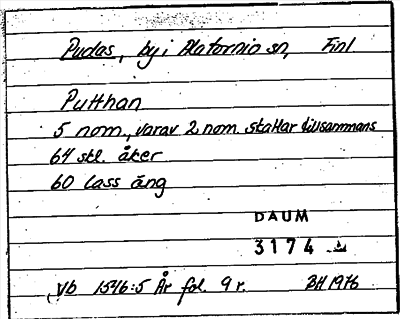 Pudas, by i Alatornio sn, Finl
Putthan
5 nom., varav 2 nom. skattar tillsammans
64 stl. åker
60 lass äng
DAUM
3174
Vb 1546:5 År fol. 9 r. BH 1976